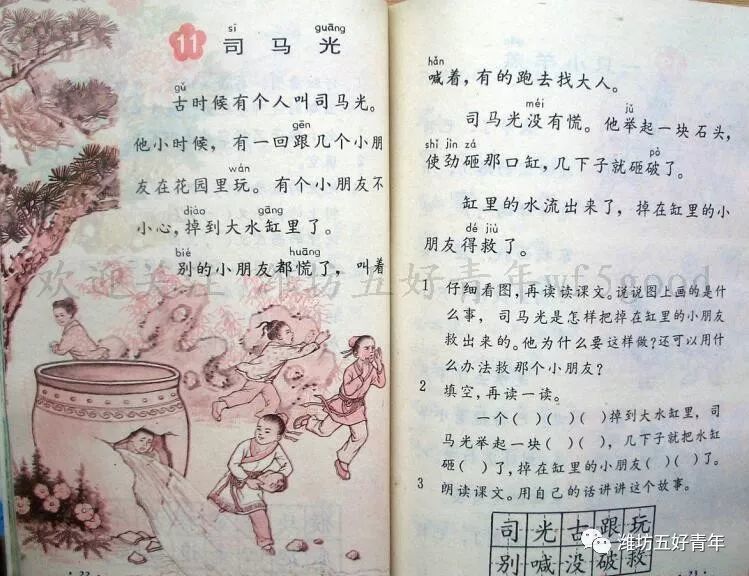 sī guāng
11 司马光
gǔ
古时候有个人叫司马光。
gēn
他小时候，有一回跟几个小朋
wán
友在花园里玩。有个小朋友不
diào gāng
小心，掉到大水缸里了。
bié huāng
别的小朋友都慌了，叫着
hǎn
喊着，有的跑去找大人。
méi jǔ
司马光没有慌。他举起一块石头，
shǐ jìn zá pò
使劲砸那口缸，几下子就砸破了。
缸里的水流出来了，掉在缸里的小
dé jiù
朋友得救了。
欢迎关注 潍坊五好青年wf5good
1 仔细看图，再读读课文。说说图上画的是什
么事，司马光是怎样把掉在缸里的小朋友
救出来的。他为什么要这样做？还可以用什
么办法救那个小朋友？
2 填空，再读一读。
一个（ ）（ ）（ ）掉到大水缸里，司
马光举起一块（ ）（ ），几下子就把水缸
砸（ ）了，掉在缸里的小朋友（ ）（ ）了。
3 朗读课文。用自己的话讲讲这个故事。
司光古跟玩
别喊没破救
潍坊五好青年